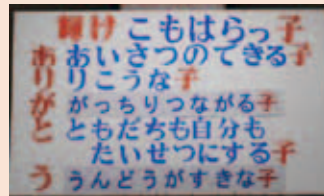 輝けこもはらっ子
ありがとう
あいさつのできる子
りこうな子
がっちりつながる子
ともだちも自分も
たいせつにする子
うんどうがすきな子